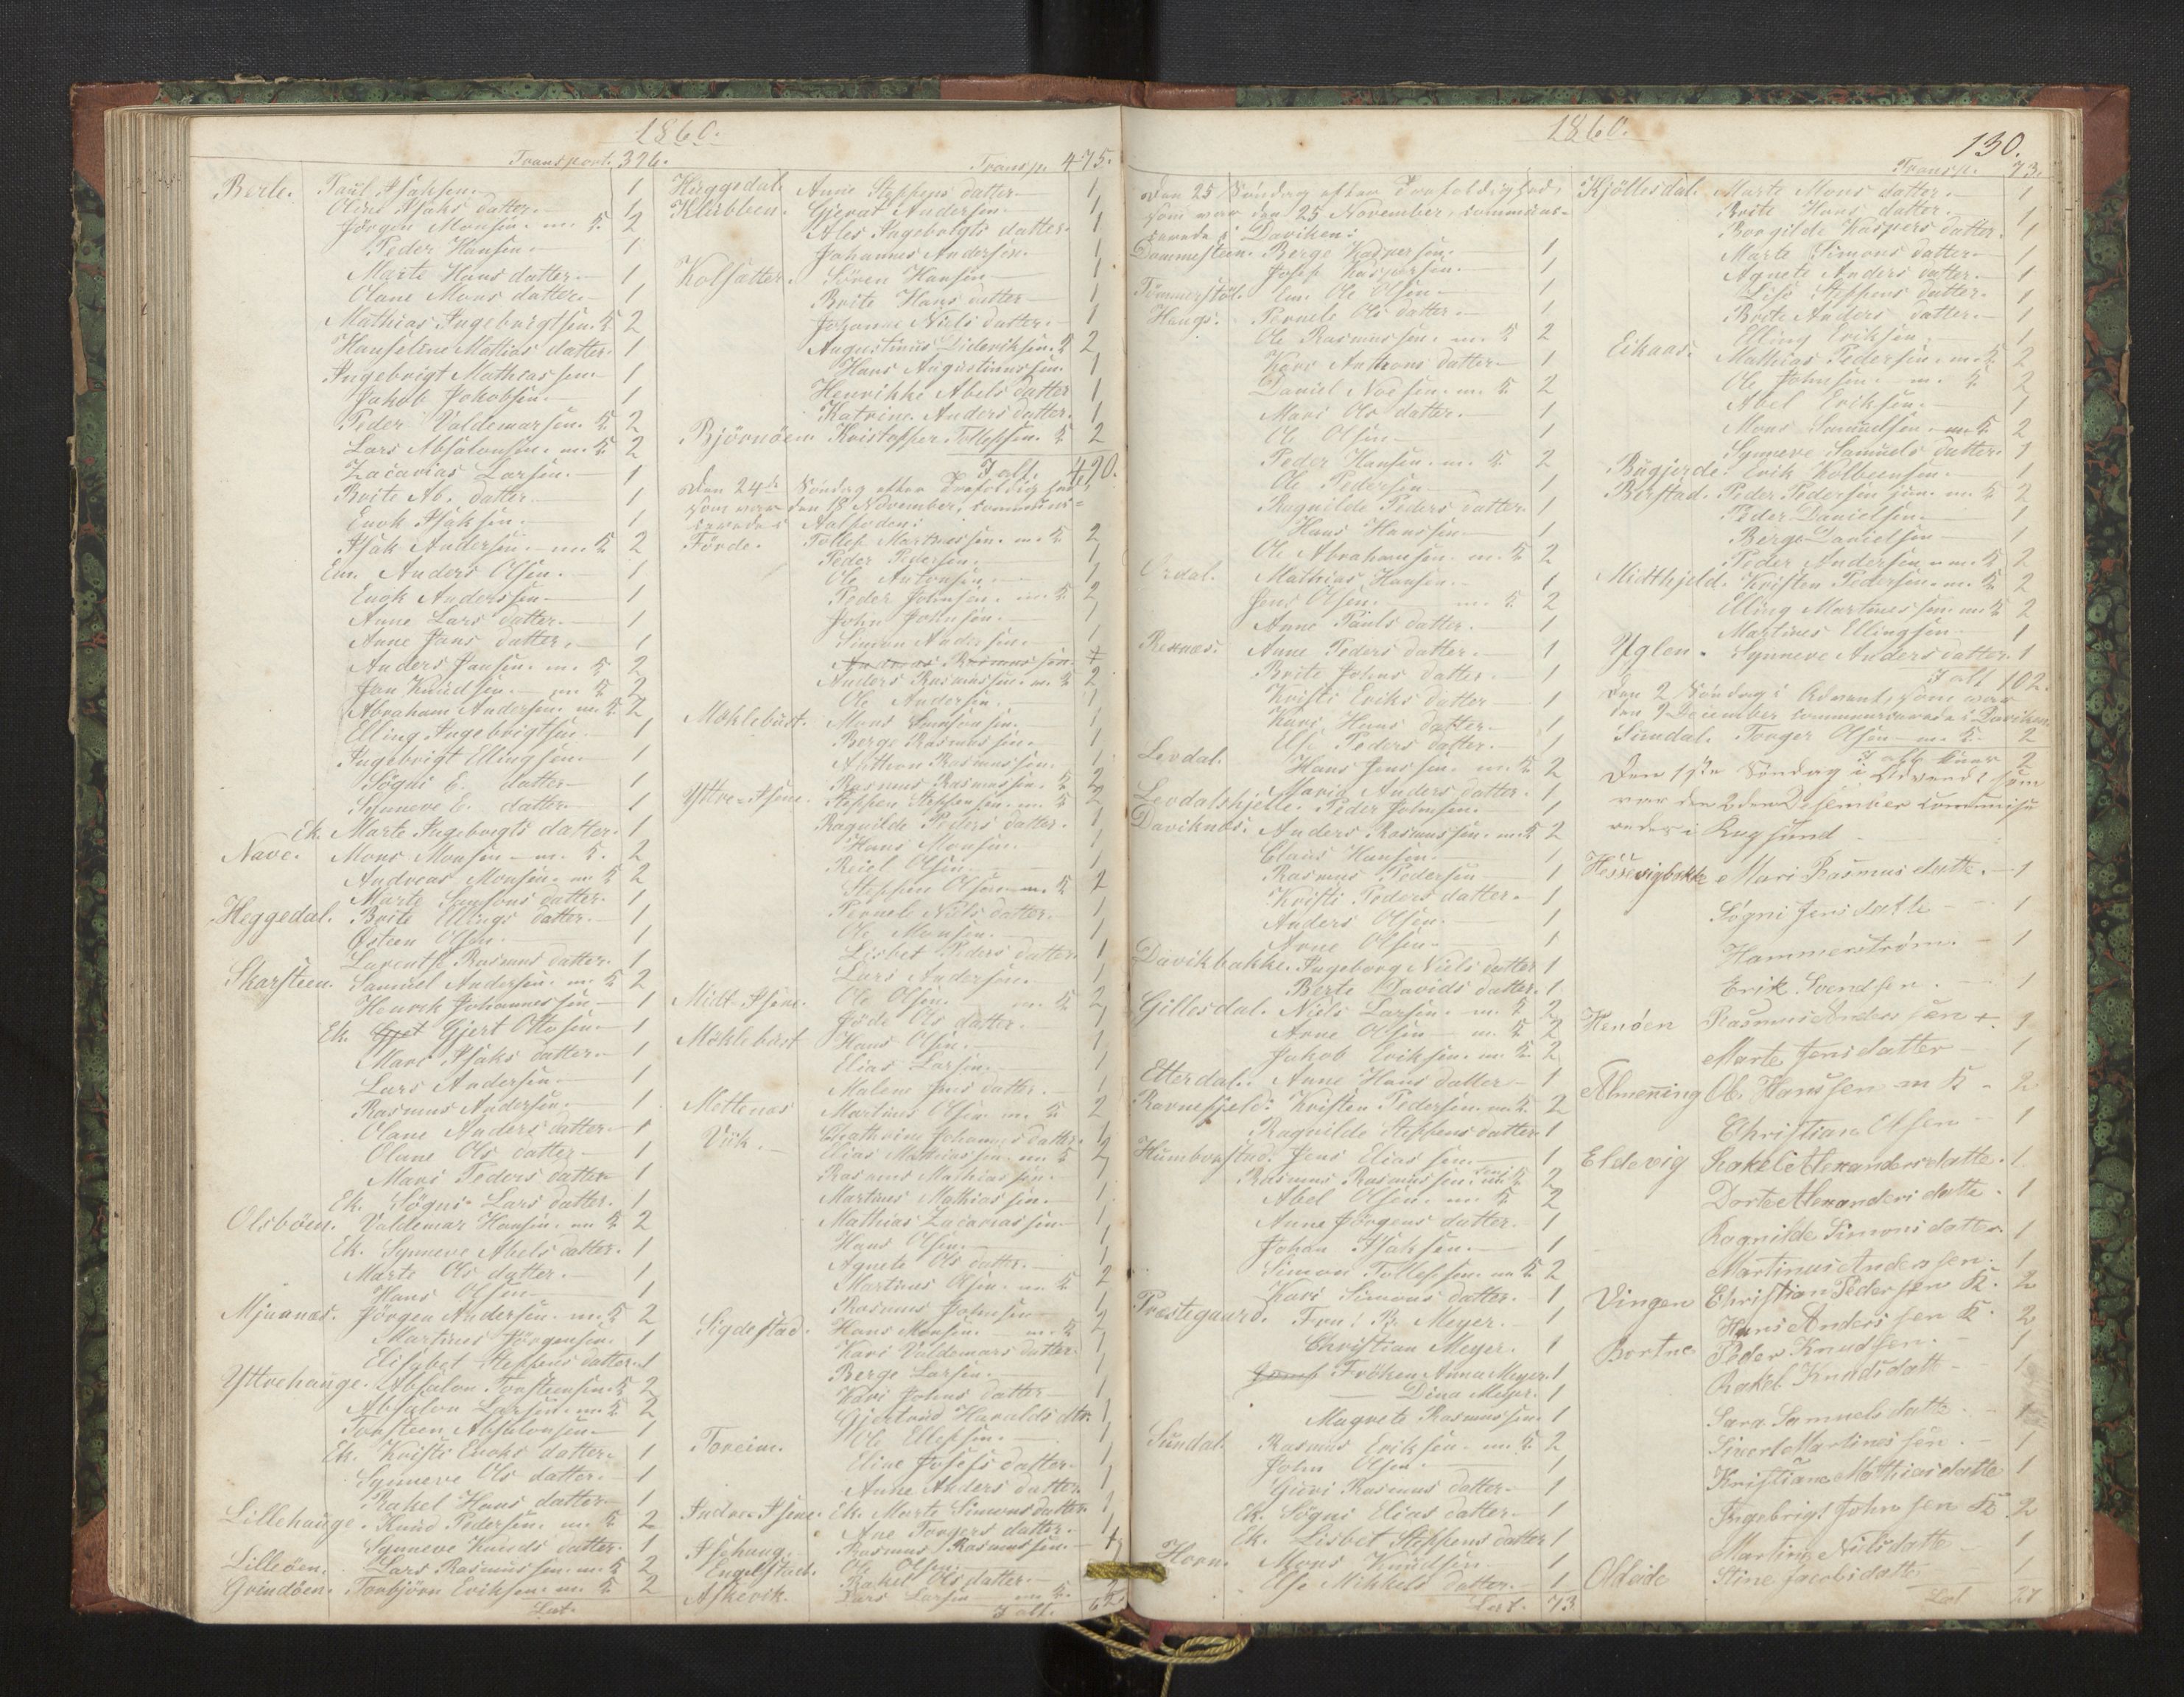 1860.
Transport. 376.
Berle. Paul Isaksen. 1
Oline Isaks datter. 1
Jörgen Monsen. m. K. 2
Peder Hansen. 1
Marte Hans datter. 1
Olane Mons datter. 1
Mathias Ingebrigtsen. K. 2
Hanseline Mathias datter. 1
Ingebrigt Mathiassen 1
Jakob Jakobsen. 1
Peder Valdemarsen. K. 2
Lars Absalonsen. m. K. 2
Zacarias Larsen. 1
Brite Ab. datter. 1
Enok Isaksen. 1
Isak Andersen. m. K. 2
Em. Anders Olsen. 1
Enok Anderssen 1
Anne Lars datter. 1
Anne Jans datter. 1
Anders Jansen. m. K. 2
Jan Knudsen. m. K. 2
Abraham Andersen. m. K. 2
Elling Ingebrigtsen. 1
Ingebrigt Ellingsen. 1
Sögni E. datter 1
Synneve E. datter. 1
Ek. Marte Ingebrigts datter. 1
Nave. Mons Monsen. m. K. 2
Andreas Monsen. m. K. 2
Marte Samsons datter. 1
Heggedal. Brite Ellings datter. 1
Østeen Olsen. 1
Larentse Rasmus datter. 1
Skarsteen. Samuel Andersen. m. K. 2
Henrik Johannessen. 1
Ek. Gjert Ottosen. 1
Mari Isaks datter. 1
Lars Andersen. 1
Rasmus Andersen. 1
Olane Anders datter. 1
Oline Ols datter 1
Mari Peders datter 1
Ek. Sögni Lars datter. 1
Olsböen. Valdemar Hansen. m. K. 2
Ek. Synneve Abels datter. 1
Marte Ols datter. 1
Hans Olsen 1
Mjuanæs. Jörgen Andersen. m. K. 2
Martinus Jörgensen. 1
Elisabet Steffens datter. 1
Yttrehauge. Absalon Torsteensen. K. 2
Absalon Larsen. m. K. 2
Torsteen Absalonsen 1
Ek. Kristi Enoks datter. 1
Synneve Ols datter. 1
Rakel Hans datter 1
Lillehauge. Knud Pedersen. m. K. 2
Synneve Knuds datter. 1
Lilleöen. Lars Rasmussen. m. K. 2
Grindöen. Torbjörn Eriksen. m. K. 2
Lat.
Transp. 475.
Haggedal. Anne Steffens datter 1
Klubben. Gjerat Andersen 1
Ales Ingebrigts datter. 1
Johannes Andersen. 1
Kolsætter. Sören Hansen 1
Brite Hans datter 1
Johanne Niels datter. 1
Augustinus Dideriksen. K. 2
Hans Augustinussen. 1
Henrikke Abels datter 1
Katrine Anders datter. 1
Björnöen Kristoffer Tollefsen. K. 2
I alt. 490.
Den 24de Söndag efter Trefoldighed,
som var den 18 November, communi=
cerede i Aalfoden:
Förde. Tollef Martinussen. m. K. 2
Peder Pedersen. 1
Ole Antonsen. 1
Peder Johnsen. m. K. 2
John Johnsen. 1
Simon Andersen. 1
Andreas Rasmussen. 1
Anders Rasmussen. m. K. 2
Ole Andersen. 1
Mæhlebust. Mons Simonsen. 1
Berge Rasmussen. 1
Anthon Rasmussen. 1
Rasmus Rasmussen. K. 2
Yttre-Isene. Steffen Steffensen. m. K. 2
Ragnilde Peders datter. 1
Hans Monsen. 1
Reiel Olsen. 1
Steffen Olsen. m. K. 2
Pernele Niels datter. 1
Ole Monsen. 1
Lisbet Peders datter. 1
Lars Andersen. 1
Midt-Isene. Ole Olsen. m. K. 2
Jöde Ols datter. 1
Mæhlebust Hans Olsen. 1
Elias Larsen. 1
Malene Jens datter. 1
Mettenæs Martinus Olsen. m. K. 2
Viik. Chathrine Johannes datter. 1
Elias Mathiassen. m. K. 2
Rasmus Mathiassen. 1
Martinus Mathiassen. 1
Mathias Zacariassen. 1
Hans Olsen. 1
Agnete Ols datter. 1
Martinus Olsen. m. K. 2
Rasmus Johnsen 1
Sigdestad. Hans Monsen. m. K. 2
Kari Valdemars datter. 1
Berge Larsen. 1
Kari Johns datter 1
Gjertrud Haralds dtr. 1
Toreim. Ole Ellefsen. 1
Eline Josefs datter. 1
Anne Anders datter. 1
Indre-Isene. Ek. Marte Simons datter. 1
Ane Torgers datter. 1
Isehaug. Rasmus Rasmussen. 1
Engelstad. Ole Olsen.
Rakel Ols datter.
Askevik. Lars Larsen m. K. 2
I alt. 62.
1860.
130.
Den 25 Söndag efter Trefoldighed,
som var den 25 November, communi-
cerede i Daviken:
Dommesteen. Berge Kaspersen. 1
Josef Kaspersen. 1
Tömmerstöl. Em. Ole Olsen 1
Haugs. Pernele Ols datter. 1
Ole Rasmussen. m. K. 2
Kari Anthons datter. 1
Daniel Noesen. m. K. 2
Mari Ols datter. 1
Ole Olsen 1
Peder Hansen. m. K. 2
Ole Pedersen 1
Ragnilde Peders datter. 1
Hans Hanssen 1
Ole Abrahamsen. m. K. 2
Ordal. Mathias Hansen. 1
Jens Olsen. m. K. 2
Anne Pauls datter. 1
Rexnæs. Anne Peders datter. 1
Brite Johns datter. 1
Kristi Eriks datter 1
Kari Hans datter. 1
Else Peders datter. 1
Levdal. Hans Jenssen. m. K. 2
Maria Anders datter. 1
Levdalshjelle. Peder Johnsen. 1
Daviknæs. Anders Rasmussen. m. K. 2
Claus Hansen. 1
Rasmus Pedersen 1
Kristi Peders datter. 1
Anders Olsen. 1
Arne Olsen. 1
Davikbakke. Ingeborg Niels datter 1
Berte Davids datter. 1
Gillesdal. Niels Larsen. m. K. 2
Arne Olsen m. K. 2
Jakob Eriksen. m. K. 2
Etterdal. Anne Hans datter 1
Ravnefjeld. Kristen Pedersen. m. K. 2
Ragnilde Steffens datter. 1
Humborstad. Jens Eliassen. 1
Rasmus Rasmussen. m. K. 2
Abel Olsen. m. K. 2
Anne Jörgens datter. 1
Johan Isaksen. 1
Simon Tollefsen. m. K. 2
Kari Simons datter. 1
Præstegaard. Fru: R. Meyer. 1
Christian Meyer. 1
Fröken Anna Meyer. 1
Dina Meyer. 1
Magrete Rasmussen. 1
Sundal. Rasmus Eriksen. m. K. 2
John Olsen. 1
Guri Rasmus datter. 1
Ek. Sögni Elias datter. 1
Ek. Lisbet Steffens datter 1
Horn. Mons Knudsen 1
Else Mikkels datter. 1
Lat. 73
Transp. 73.
Kjöllesdal. Marte Mons datter. 1
Brite Hans datter. 1
Borgilde Kaspers datter. 1
Marte Simons datter. 1
Agnete Anders datter. 1
Lise Steffens datter. 1
Brite Anders datter. 1
Elling Eriksen. 1
Eikaas. Mathias Pedersen. m. K. 2
Ole Johnsen. m. K. 2
Abel Eriksen. 1
Mons Samuelsen. m. K. 2
Synneve Samuels datter. 1
Rugjerde. Erik Kolbeensen. 1
Berstad. Peder Pedersen jun. m. K. 2
Peder Danielsen. 1
Berge Danielsen 1
Peder Andersen. m. K. 2
Midthjeld. Kristen Pedersen. m. K. 2
Elling Martinussen. m. K. 2
Martines Ellingsen. 1
Yglen. Synneve Anders datter. 1
I alt 102.
Den 2 Söndag i Advent, som var
den 9 December communicerede i Daviken.
Sundal. Torger Olsen m. K. 2
I alt kuns 2
Den 1ste Söndag i Advendt som
var den 2den Desember communise
redes i Rugsund
Hessevigbakke Mari Rasmusdatte. 1
Sögni Jensdatte 1
Hammerström. 1
Erik Svendsen. 1
Henöen Rasmus Anderssen +. 1
Marte Jensdatter 1
Almenning Ole Hanssen m K 2
Christian Olsen 1
Eldevig Rakel Alexandersdatte. 1
Dorte Alexandersdatte. 1
Ragnilde Simonsdatter 1
Martinus Anderssen. 1
Vingen Christian Pederssen K. 2
Hans Anderssen K. 2
Bortne Peder Knudsen. 1
Rakel Knudsdatt 1
Sara Samuelsdatte. 1
Sivert Martinessen. 1
Kristiane Mathiasdatte 1
Ingebrigt Johnsen K 2
Martine Nilsdatte 1
Oldeide Stine Jacobsdatter 1
Lat 27